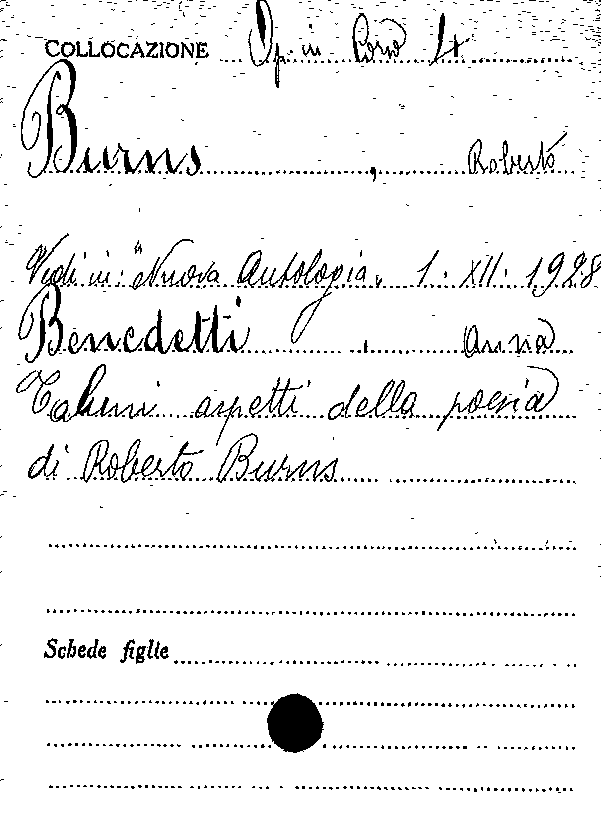 COLLOCAZIONE Op. in Corso It
Burns, Roberto
Vedi in: "Nuova Antologia" 1. XII. 1928
Benedetti, Anna
Taluni aspetti della poesia
di Roberto Burns
Schede figlie